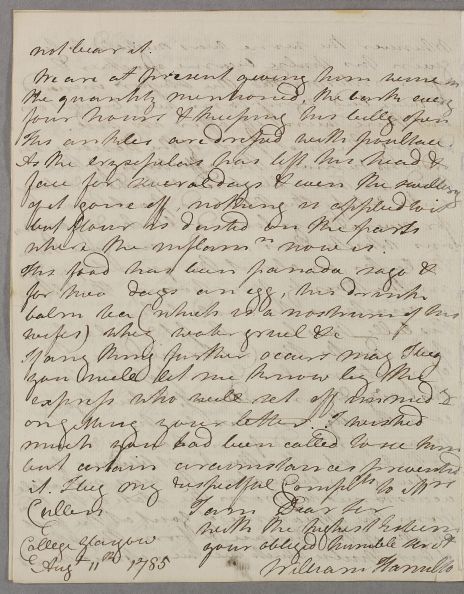 not bear it.
We are at present giving him wine in
the quantity mentioned, the bark every
four hours & keeping his belly open
His ankles are dressed with poultice.
As the erysipelas has left his head &
face for several days & even the swelling
of it gone off nothing is applied to it
but flour is dusted on the parts
where the inflamn now is.
His food has been panada sago &
for two days an egg, his drink
balm tea (which is a nostrum of his
wifes) whey water gruel &c
If any thing further occurs may I beg
you will let me know by this
express who will set off immedly
on getting your letter. I wished
much you had been called to see him
but certain circumstances prevented
it. I beg my respectful Complts to Mrs
Cullen. I am Dear Sir
with the highest esteem
your obliged humble servt
William Hamilton
College Glasgow
Augt 11th 1785